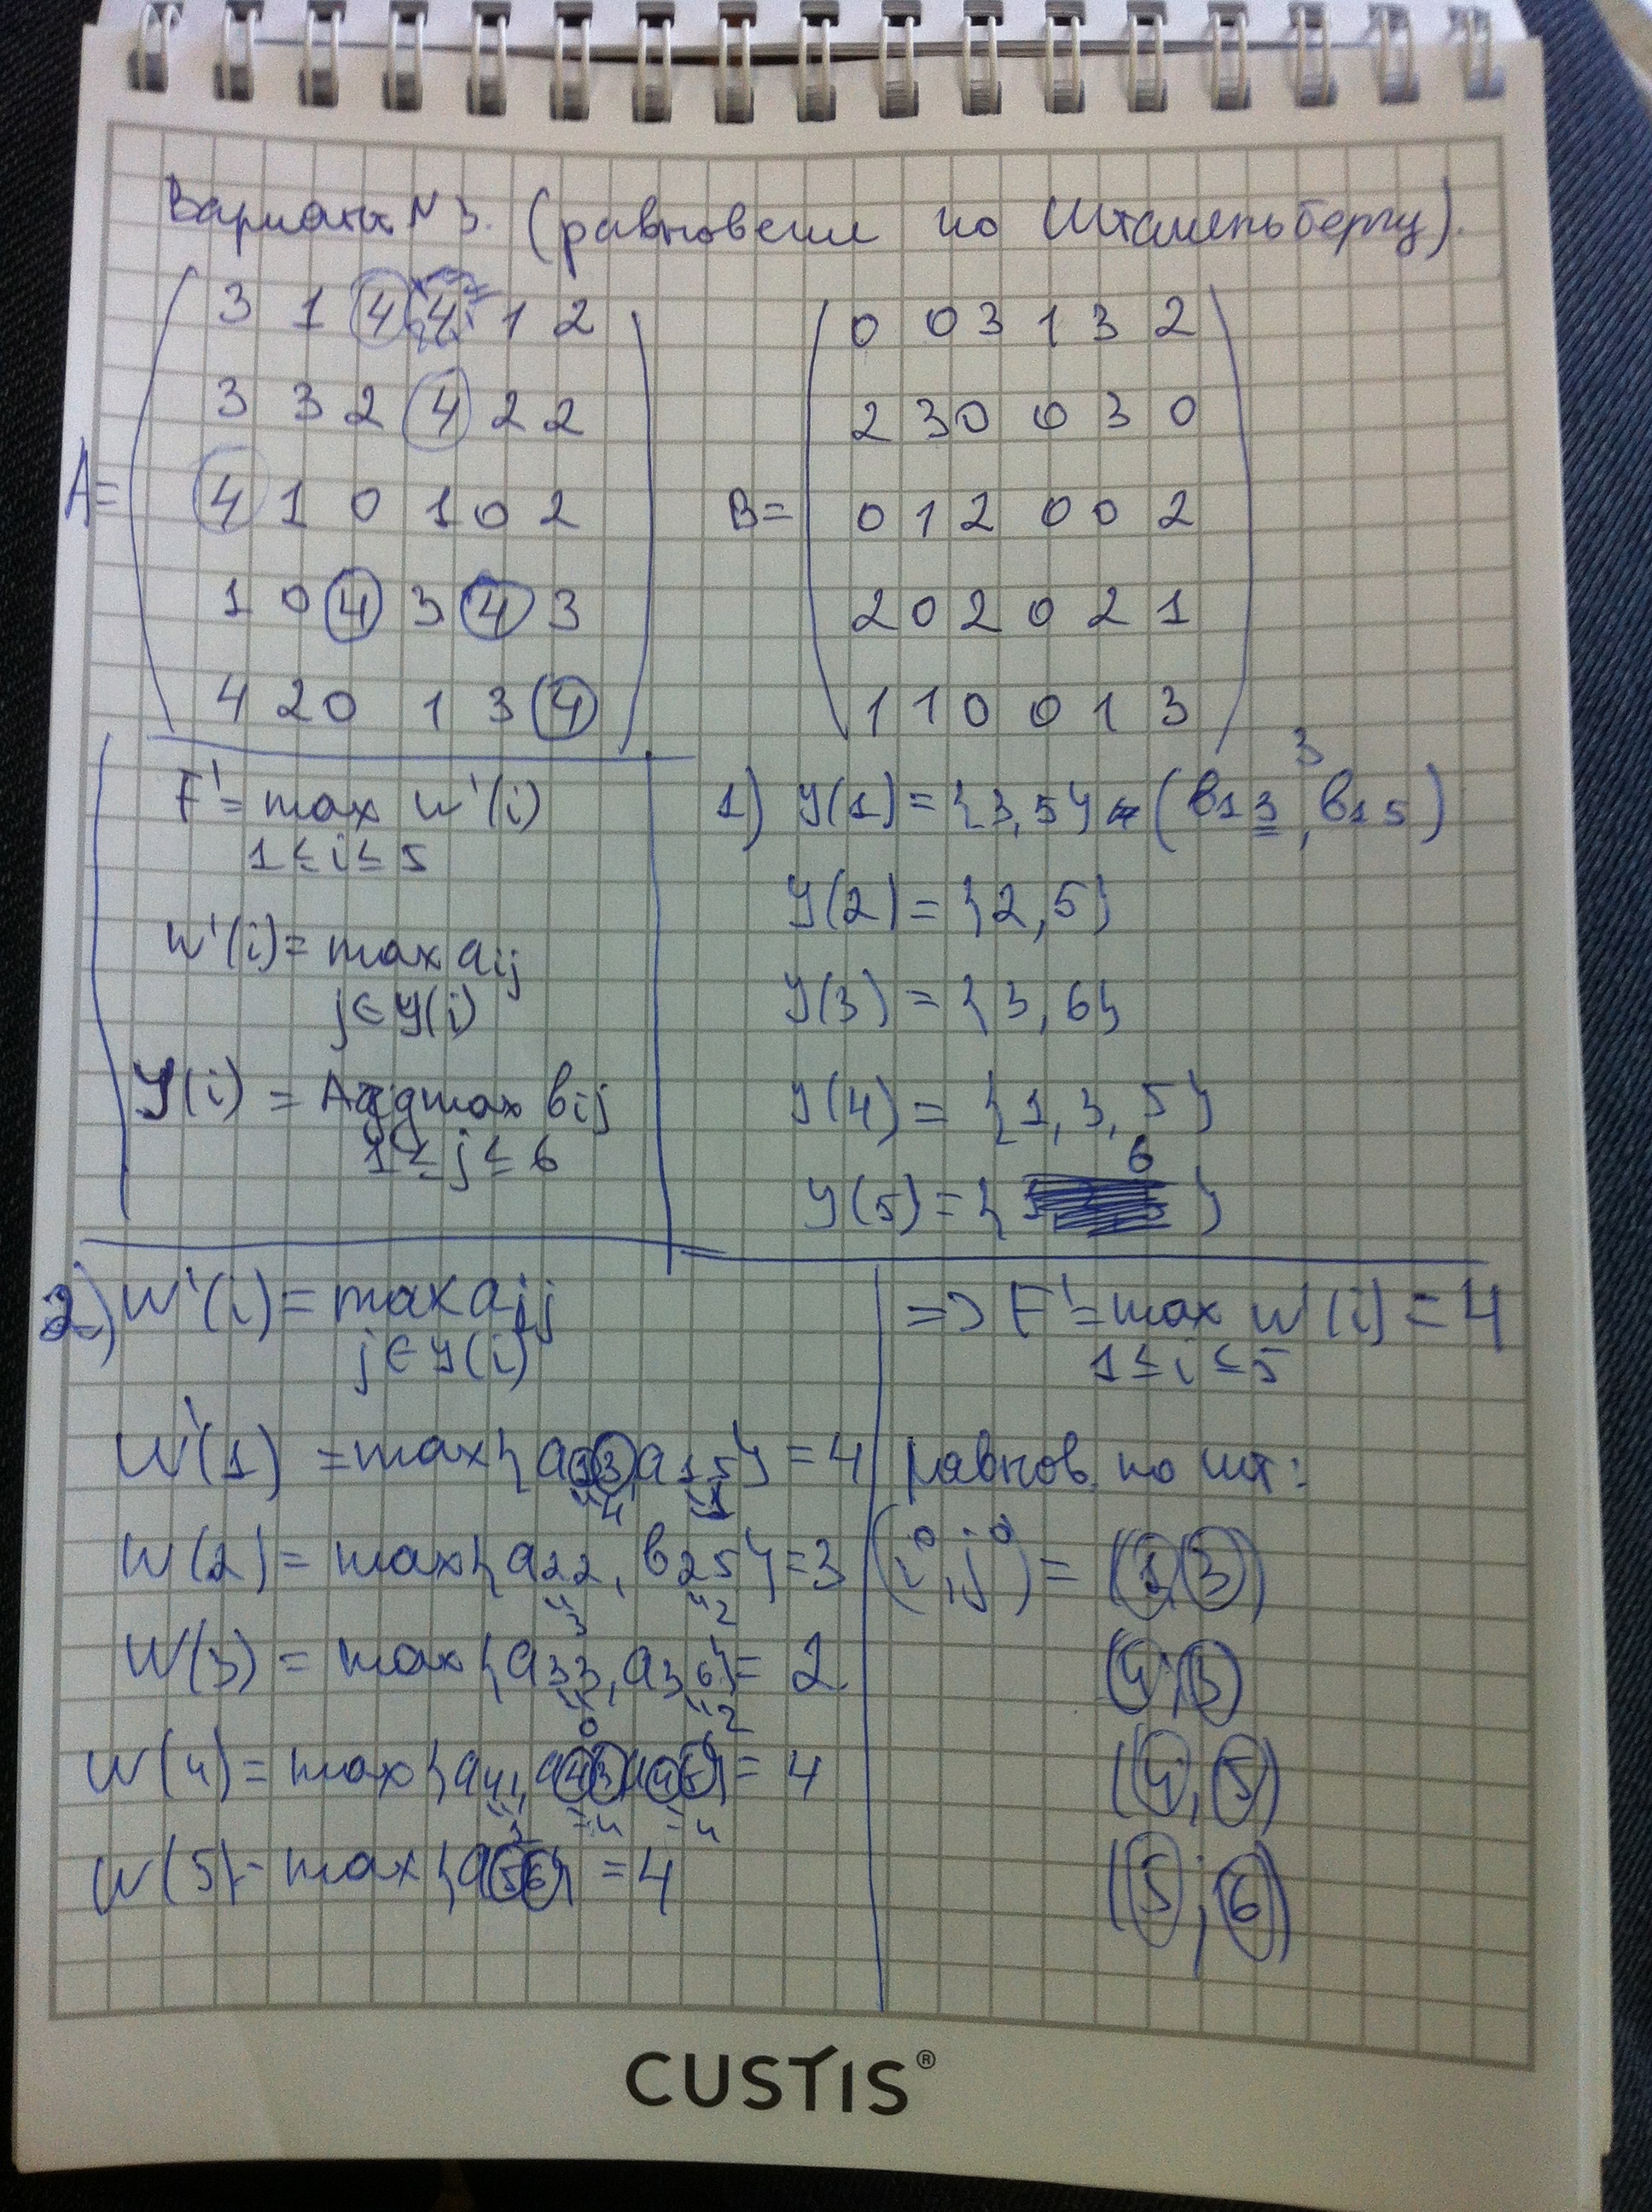 Вариант №3. (равновесие по Штакельбергу).
A=
3 1 4 4 1 2
3 3 2 4 2 2
4 1 0 1 0 2
1 0 4 3 4 3
4 2 0 1 3 4
B=
0 0 3 1 3 2
2 3 0 0 3 0
0 1 2 0 0 2
2 0 2 0 2 1
1 1 0 0 1 3
F' = max w'(i)
1≤i≤5
w'(i) = max aij
j∈Y(i)
Y(i) = Argmax вij
1≤j≤6
3
1) Y(1) = {3,5} (в13, в15)
Y(2) = {2,5}
Y(3) = {3,6}
Y(4) = {1,3,5}
6
Y(5) = { }
2) w'(i) = max aij
j∈Y(i)
w'(1) = max{a13, a15} = 4
4 1
w(2) = max{a22, в25} = 3
3 2
w(3) = max{a33, a36} = 2
0 2
w(4) = max{a41, a43, a45} = 4
1 =4 =4
w(5) = max{a56} = 4
=> F' = max w'(i) = 4
1≤i≤5
равнов. по шт:
(i⁰, j⁰) = (1,3)
(4,3)
(4,5)
(5;6)
CUSTIS®